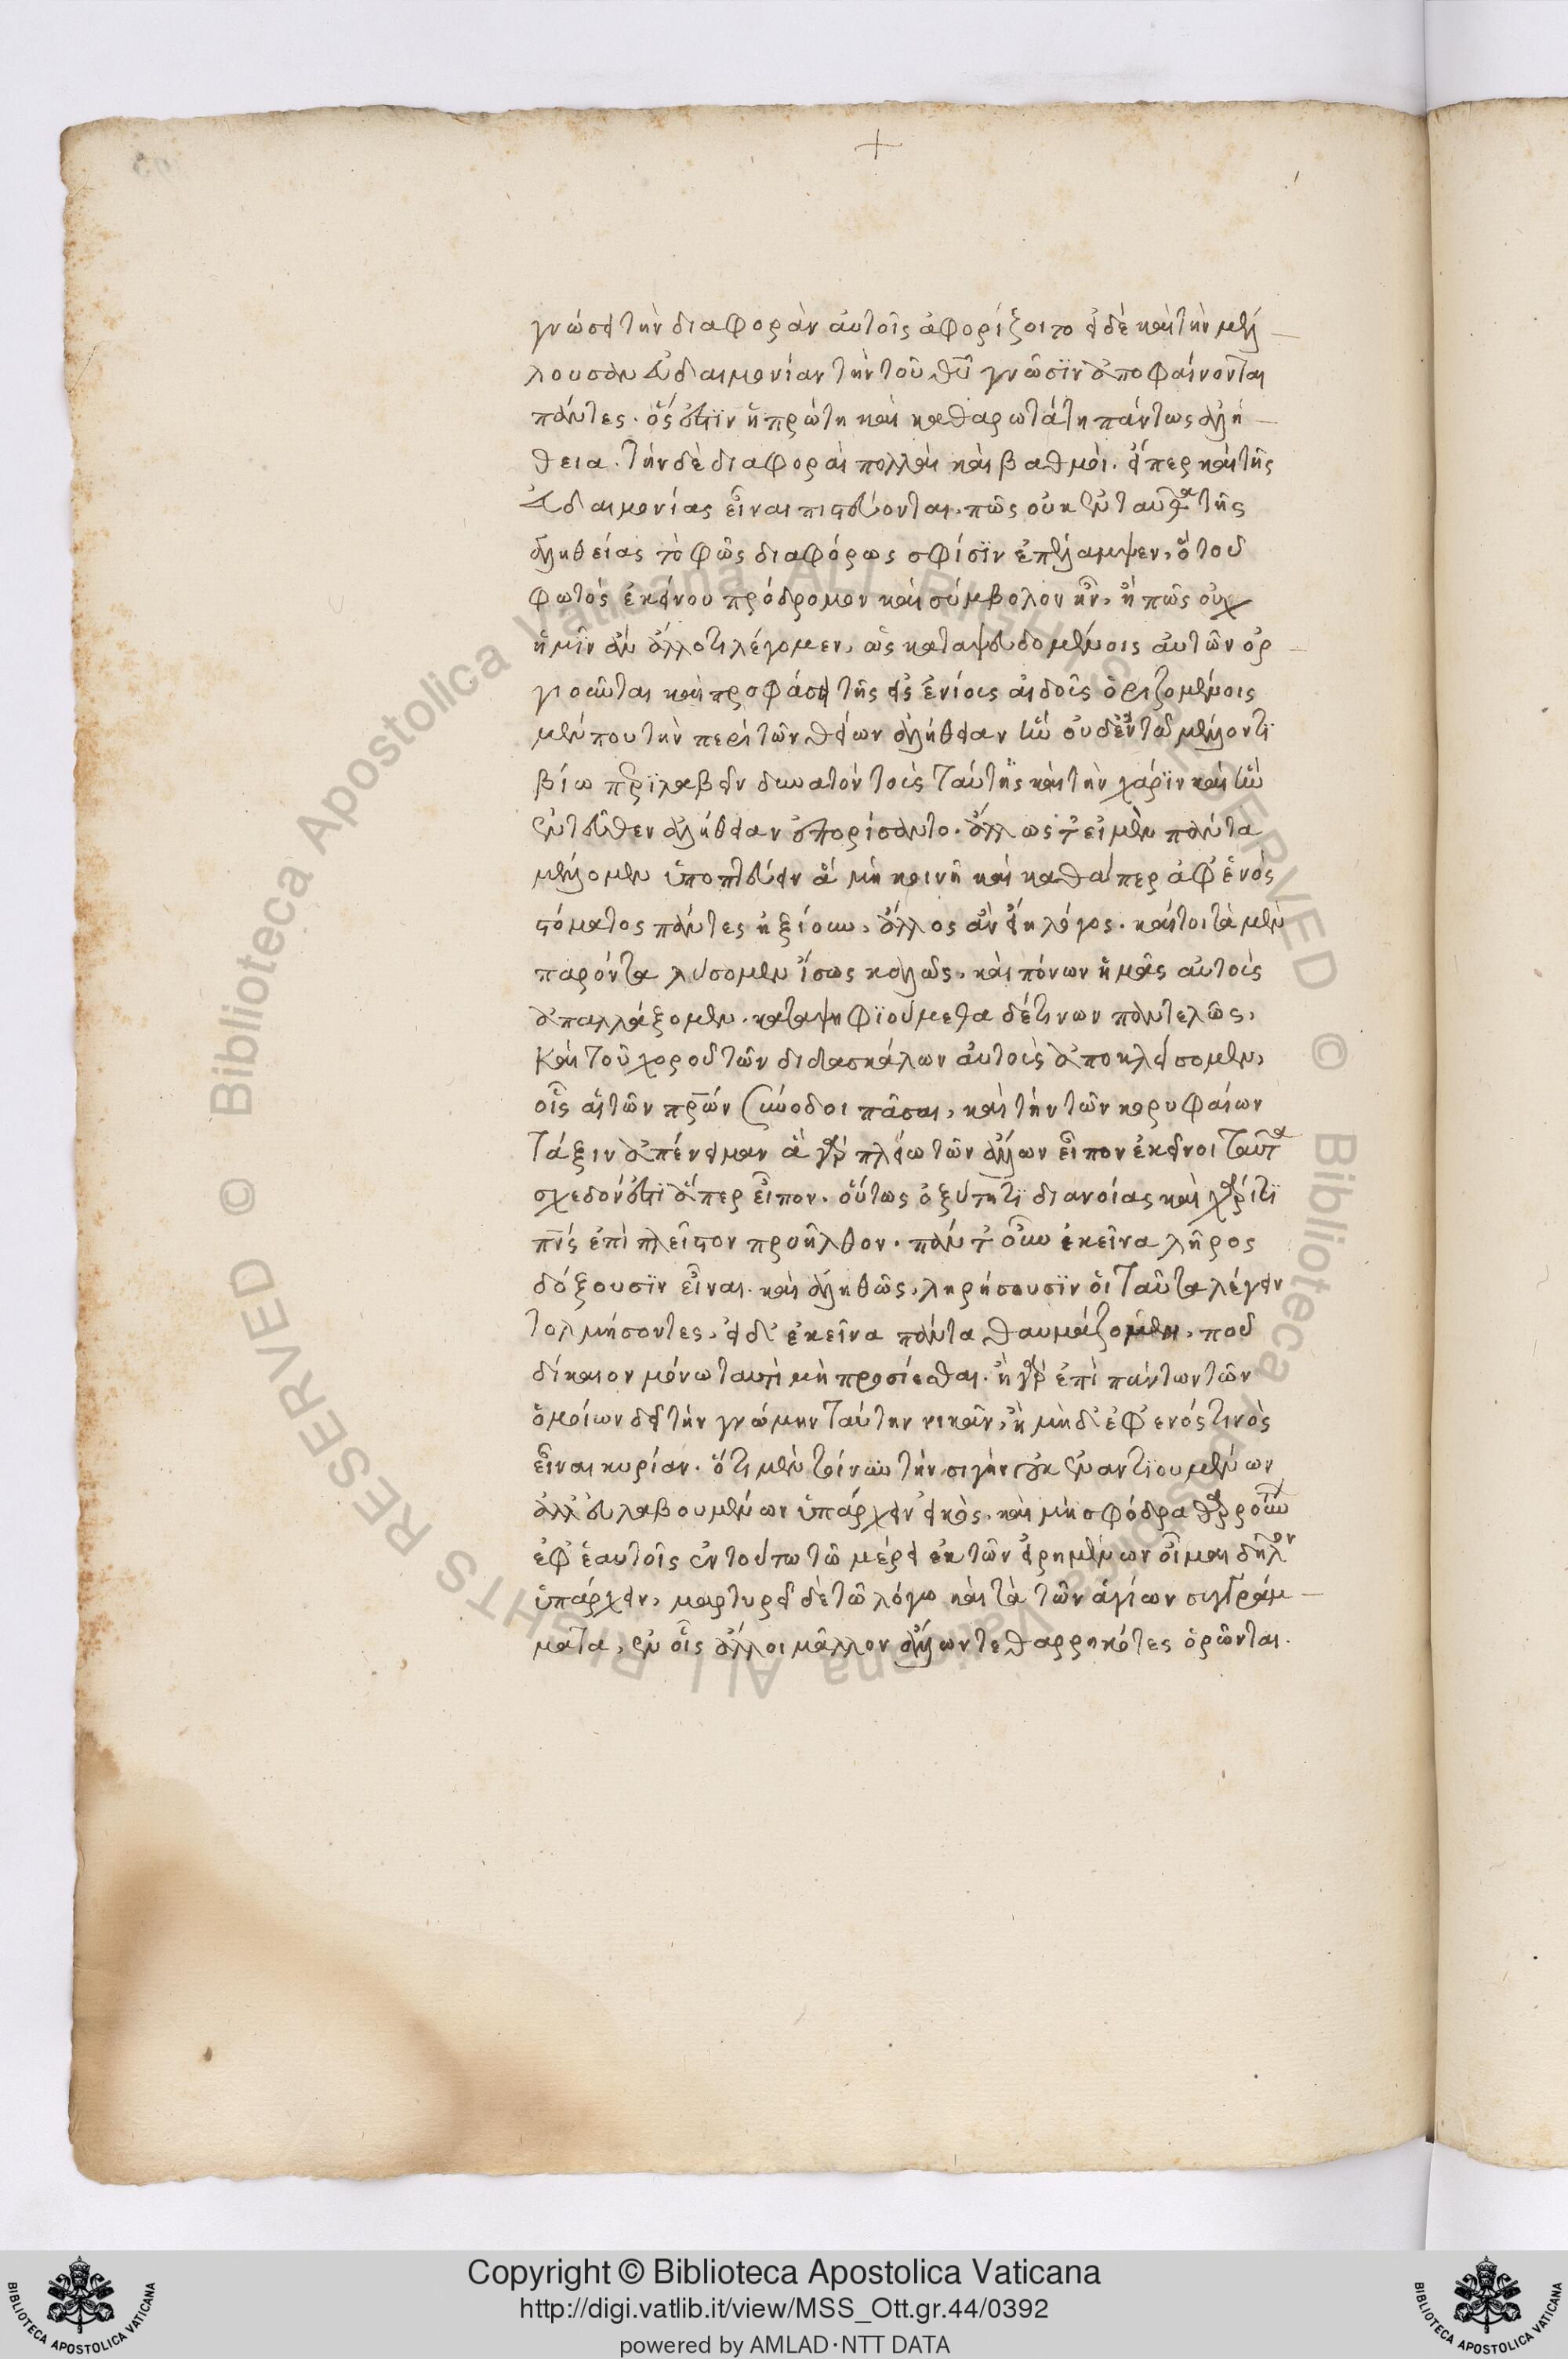 +
γνώσει τὴν διαφορὰν αὐτοῖς ἀφορίζοιτο εἰ δὲ καὶ τὴν μέλ
λουσαν εὐδαιμονίαν τὴν τοῦ θυ γνῶσϊν ἀποφαίνονται
πάντες. ὅς ἐστϊν ἡ πρώτη καὶ καθαρωτάτη πάντως ἀλή
θεια. τὴν δὲ διαφοραὶ πολλαὶ καὶ βαθμοὶ. εἴπερ καὶ τῆς
εὐδαιμονίας εἶναι πιστεύονται. πῶς οὐκ ἐνταῦθα τῆς
ἀληθείας τὸ φῶς διαφόρως σφίσϊν ἐπέλαμψεν, ὃ τοῦ
φωτὸς ἐκείνου πρόδρομον καὶ σύμβολον ἦν, ἢ πῶς οὐχ
ἡμῖν ἂν ἄλλο τι λέγομεν, ὡς καταψευδομένοις αὐτῶν ὀρ
γιοῦνται καὶ προφάσει τῆς εἰς ἐνίοις αἰδοῖς ὁριζομένοις
μέν που τὴν περὶ τῶν θείων ἀλήθειαν ἣν οὐδὲν τῶ μέλλοντϊ
βίω πρϊλαβεῖν δυνατὸν τοῖς ταύτης καὶ τὴν χάρϊν καὶ ἣν
ἐντεῦθεν ἀλήθειαν ἐπορίσαντο. ἄλλως τε εἰ μὲν πάντα
μέλλομεν ὑποπτεύειν ἃ μὴ κοινῆ καὶ καθάπερ ἀφ' ἑνὸς
στόματος πάντες ἠξίουν, ἄλλος ἂν εἴη λόγος. καίτοι τὰ μὲν
παρόντα λύσομεν ἴσως καλῶς, καὶ πόνων ἡμᾶς αὐτοὺς
ἀπαλλάξομεν. καταψηφϊούμεθα δέ τινων παντελῶς,
καὶ τοῦ χοροῦ τῶν διδασκάλων αὐτοὺς ἀποκλείσομεν,
οἷς αἱ τῶν πρων σύνοδοι πᾶσαι, καὶ τὴν τῶν κορυφαίων
τάξιν ἀπένειμαν ἃ γὰρ πλείω τῶν ἄλλων εἶπον ἐκεῖνοι ταῦτα
σχεδόν ἐστϊ ἅπερ εἶπον. οὕτως ὀξύτητϊ διανοίας καὶ χάριτϊ
πνς ἐπὶ πλεῖστον προῆλθον. πάντ' οὖν ἐκεῖνα λῆρος
δόξουσϊν εἶναι. καὶ ἀληθῶς, ληρήσουσϊν οἱ ταῦτα λέγειν
τολμήσοντες, εἰ δ' ἐκεῖνα πάντα θαυμάζομεν, ποῦ
δίκαιον μόνω ταυτὶ μὴ προσίεσθαι. ἢ γὰρ ἐπὶ πάντων τῶν
ὁμοίων δεῖ τὴν γνώμην ταύτην νικᾶν, ἢ μὴ δ' ἐφ' ενός τινὸς
εἶναι κυρίαν. ὅτι μὲν τοίνυν τὴν σιγὴν οὐκ ἐναντϊουμένων
ἀλλ' εὐλαβουμένων ὑπάρχειν εἰκὸς, καὶ μὴ σφόδρα θαρρούντων
ἐφ' ἑαυτοῖς ἐν τούτω τῶ μέρει ἐκ τῶν εἰρημένων οἶμαι δῆλον
ὑπάρχειν, μαρτυρεῖ δὲ τῶ λόγω καὶ τὰ τῶν ἁγίων συγγράμ
ματα, ἐν οἷς ἄλλοι μᾶλλον ἄλλων τεθαρρηκότες ὁρῶνται.
© Biblioteca Apostolica Vaticana ALL RIGHTS RESERVED © Biblioteca Apostolica Vaticana ALL RIGHTS RESERVED
Copyright © Biblioteca Apostolica Vaticana
http://digi.vatlib.it/view/MSS_Ott.gr.44/0392
powered by AMLAD·NTT DATA
BIBLIOTECA APOSTOLICA VATICANA
BIBLIOTECA APOSTOLICA VATICANA